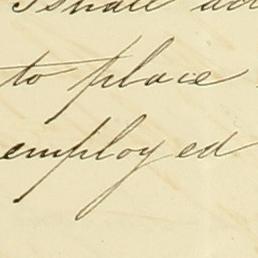 I shall
to place
employed